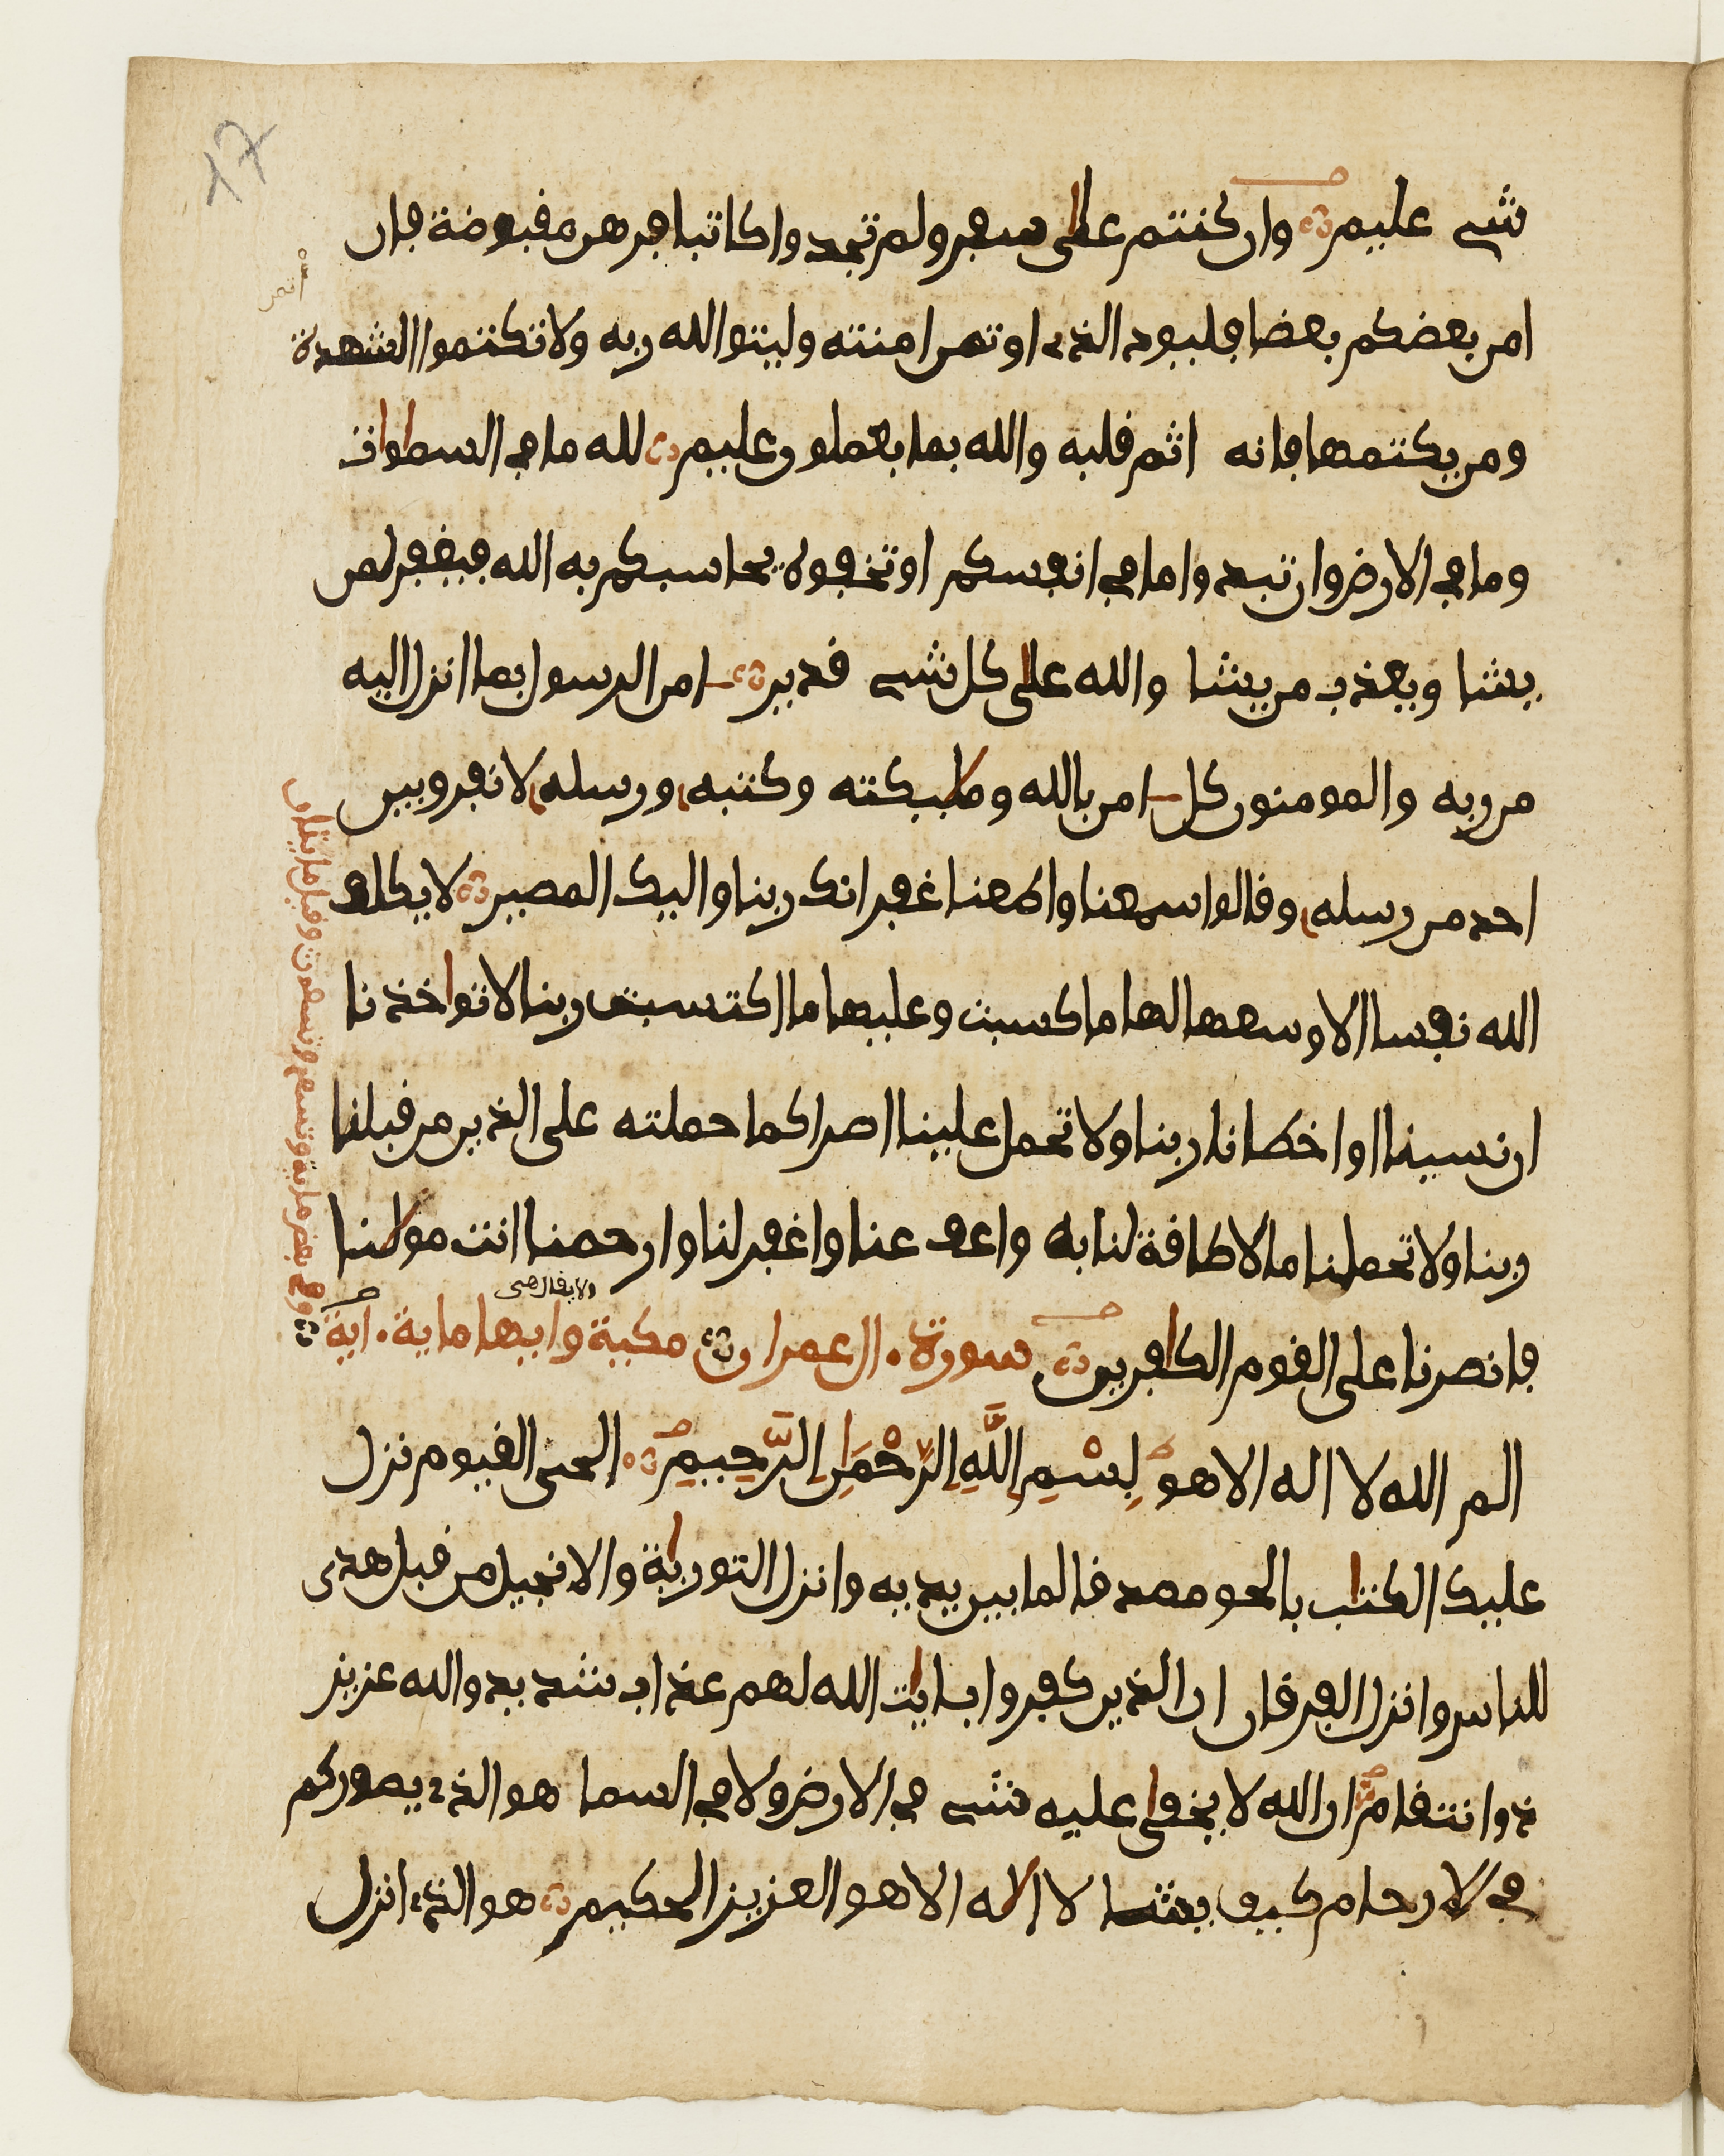 17
شى عليم وان كنتم على سفر ولم تجدوا كاتبا فرهن مقبوضة فان
امن بعضكم بعضا فليود الذى اوتمن امنته وليتق الله ربه ولا تكتموا الشهدة
ومن يكتمها فانه اثم قلبه والله بما تعملون عليم لله ما فى السموات
وما فى الارض وان تبدوا ما فى انفسكم او تخفوه يحاسبكم به الله فيغفر لمن
يشا ويعذب من يشا والله على كل شى قدير امن الرسول بما انزل اليه
من ربه والمومنون كل امن بالله ومليكته وكتبه ورسله لا نفرق بين
احد من رسله وقالوا سمعنا واطعنا غفرانك ربنا واليك المصير لا يكلف
الله نفسا الا وسعها لها ما كسبت وعليها ما اكتسبت ربنا لا تواخذنا
ان نسينا او اخطانا ربنا ولا تحمل علينا اصرا كما حملته على الذين من قبلنا
ربنا ولا تحملنا ما لا طاقة لنا به واعف عنا واغفر لنا وارحمنا انت مولنا
فانصرنا على القوم الكافرين سورة ال عمران مكية وايها ماية اية
الم الله لا اله الا هو بِسْمِ اللَّهِ الرَّحْمَنِ الرَّحِيمِ الحى القيوم نزل
عليك الكتاب بالحق مصدقا لما بين يديه وانزل التورية والانجيل من قبل هدى
للناس وانزل الفرقان ان الذين كفروا بايت الله لهم عذاب شديد والله عزيز
ذو انتقام ان الله لا يخفى عليه شى فى الارض ولا فى السما هو الذى يصوركم
فى الارحام كيف يشا لا اله الا هو العزيز الحكيم هو الذى انزل